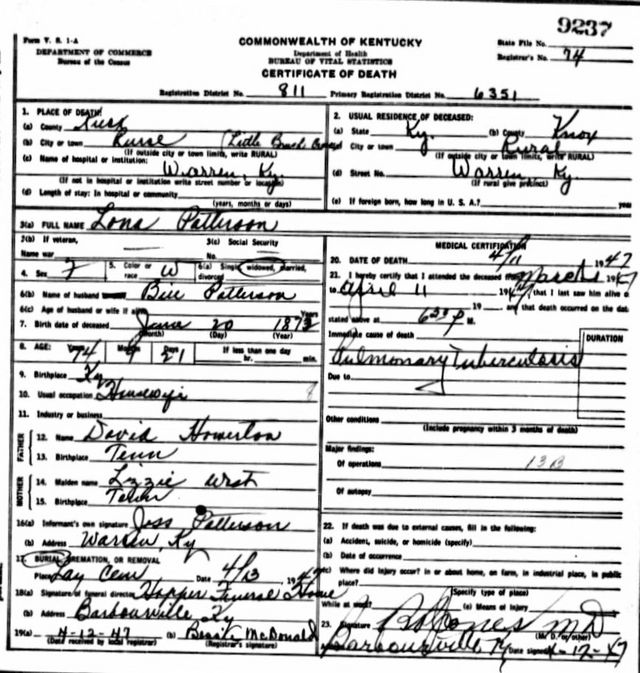 9237
Form V. S. 1-A
DEPARTMENT OF COMMERCE
Bureau of the Census
COMMONWEALTH OF KENTUCKY
Department of Health
BUREAU OF VITAL STATISTICS
CERTIFICATE OF DEATH
State File No.
Registrar's No. 74
Registration District No. 811 Primary Registration District No. 6351
1. PLACE OF DEATH:
(a) County
(b) City or town
(If outside city or town limits, write RURAL)
(c) Name of hospital or institution:
Warren, Ky.
(If not in hospital or institution write street number or location)
(d) Length of stay: In hospital or community
(years, months or days)
2. USUAL RESIDENCE OF DECEASED:
(a) State Ky. (b) County Knox
(c) City or town Rural
(If outside city or town limits, write RURAL)
(d) Street No. Warren, Ky.
(If rural give precinct)
(e) If foreign born, how long in U. S. A.?
3(a) FULL NAME Lona Patterson
3(b) If veteran, 3(c) Social Security
Name war No.
4. Sex F 5. Color or race W 6(a) Single, widowed, married, divorced
6(b) Name of husband Patterson
6(c) Age of husband or wife if alive Years
7. Birth date of deceased June 20 1872
(Month) (Day) (Year)
8. AGE: Years 74 Months 9 Days 21 If less than one day hr. min.
9. Birthplace Ky
10. Usual occupation Housewife
11. Industry or business
FATHER
12. Name David Homerton
13. Birthplace Tenn
MOTHER
14. Maiden name Lizzie West
15. Birthplace Tenn
16(a) Informant's own signature Joss Patterson
(b) Address Warren, Ky
17. BURIAL, CREMATION, OR REMOVAL
Place Lay Cem Date 4/13 1947
18(a) Signature of funeral director Hopper Funeral Home
(b) Address Barbourville, Ky
19(a) 4-12-47 (b) McDonald
(Date received by local registrar) (Registrar's signature)
MEDICAL CERTIFICATION
20. DATE OF DEATH 4/11 1947
21. I hereby certify that I attended the deceased from March
to April 11 1947, that I last saw him alive
19 and that death occurred on the date
stated above at 630 P M.
Immediate cause of death
DURATION
Pulmonary Tuberculosis
Due to
Other conditions
(Include pregnancy within 3 months of death)
Major findings:
Of operations 13B
Of autopsy
22. If death was due to external causes, fill in the following:
(a) Accident, suicide, or homicide (specify)
(b) Date of occurrence
(c) Where did injury occur? in or about home, on farm, in industrial place, in public
place?
(Specify type of place)
While at work? (e) Means of injury
23. Signature Jones MD
(M. D. or other)
Barbourville Ky Date signed 4-12-47